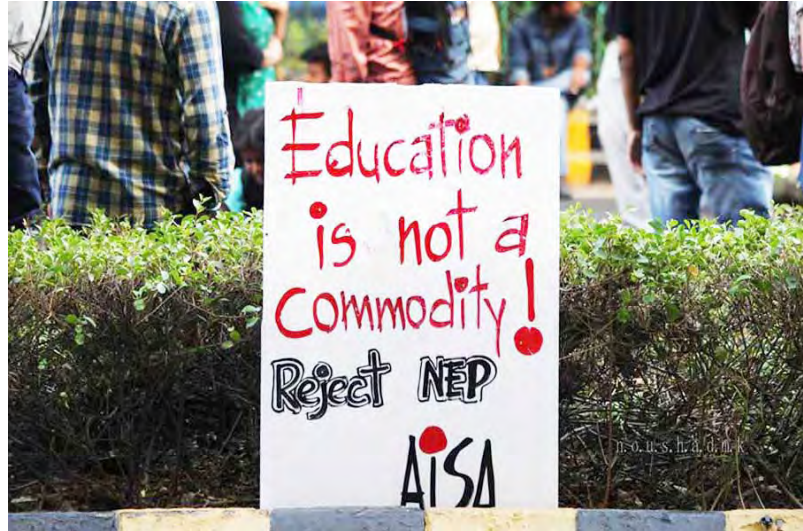 Education
is not a
commodity!
Reject NEP
AISA
n.o.u.s.h.a.d.m.k